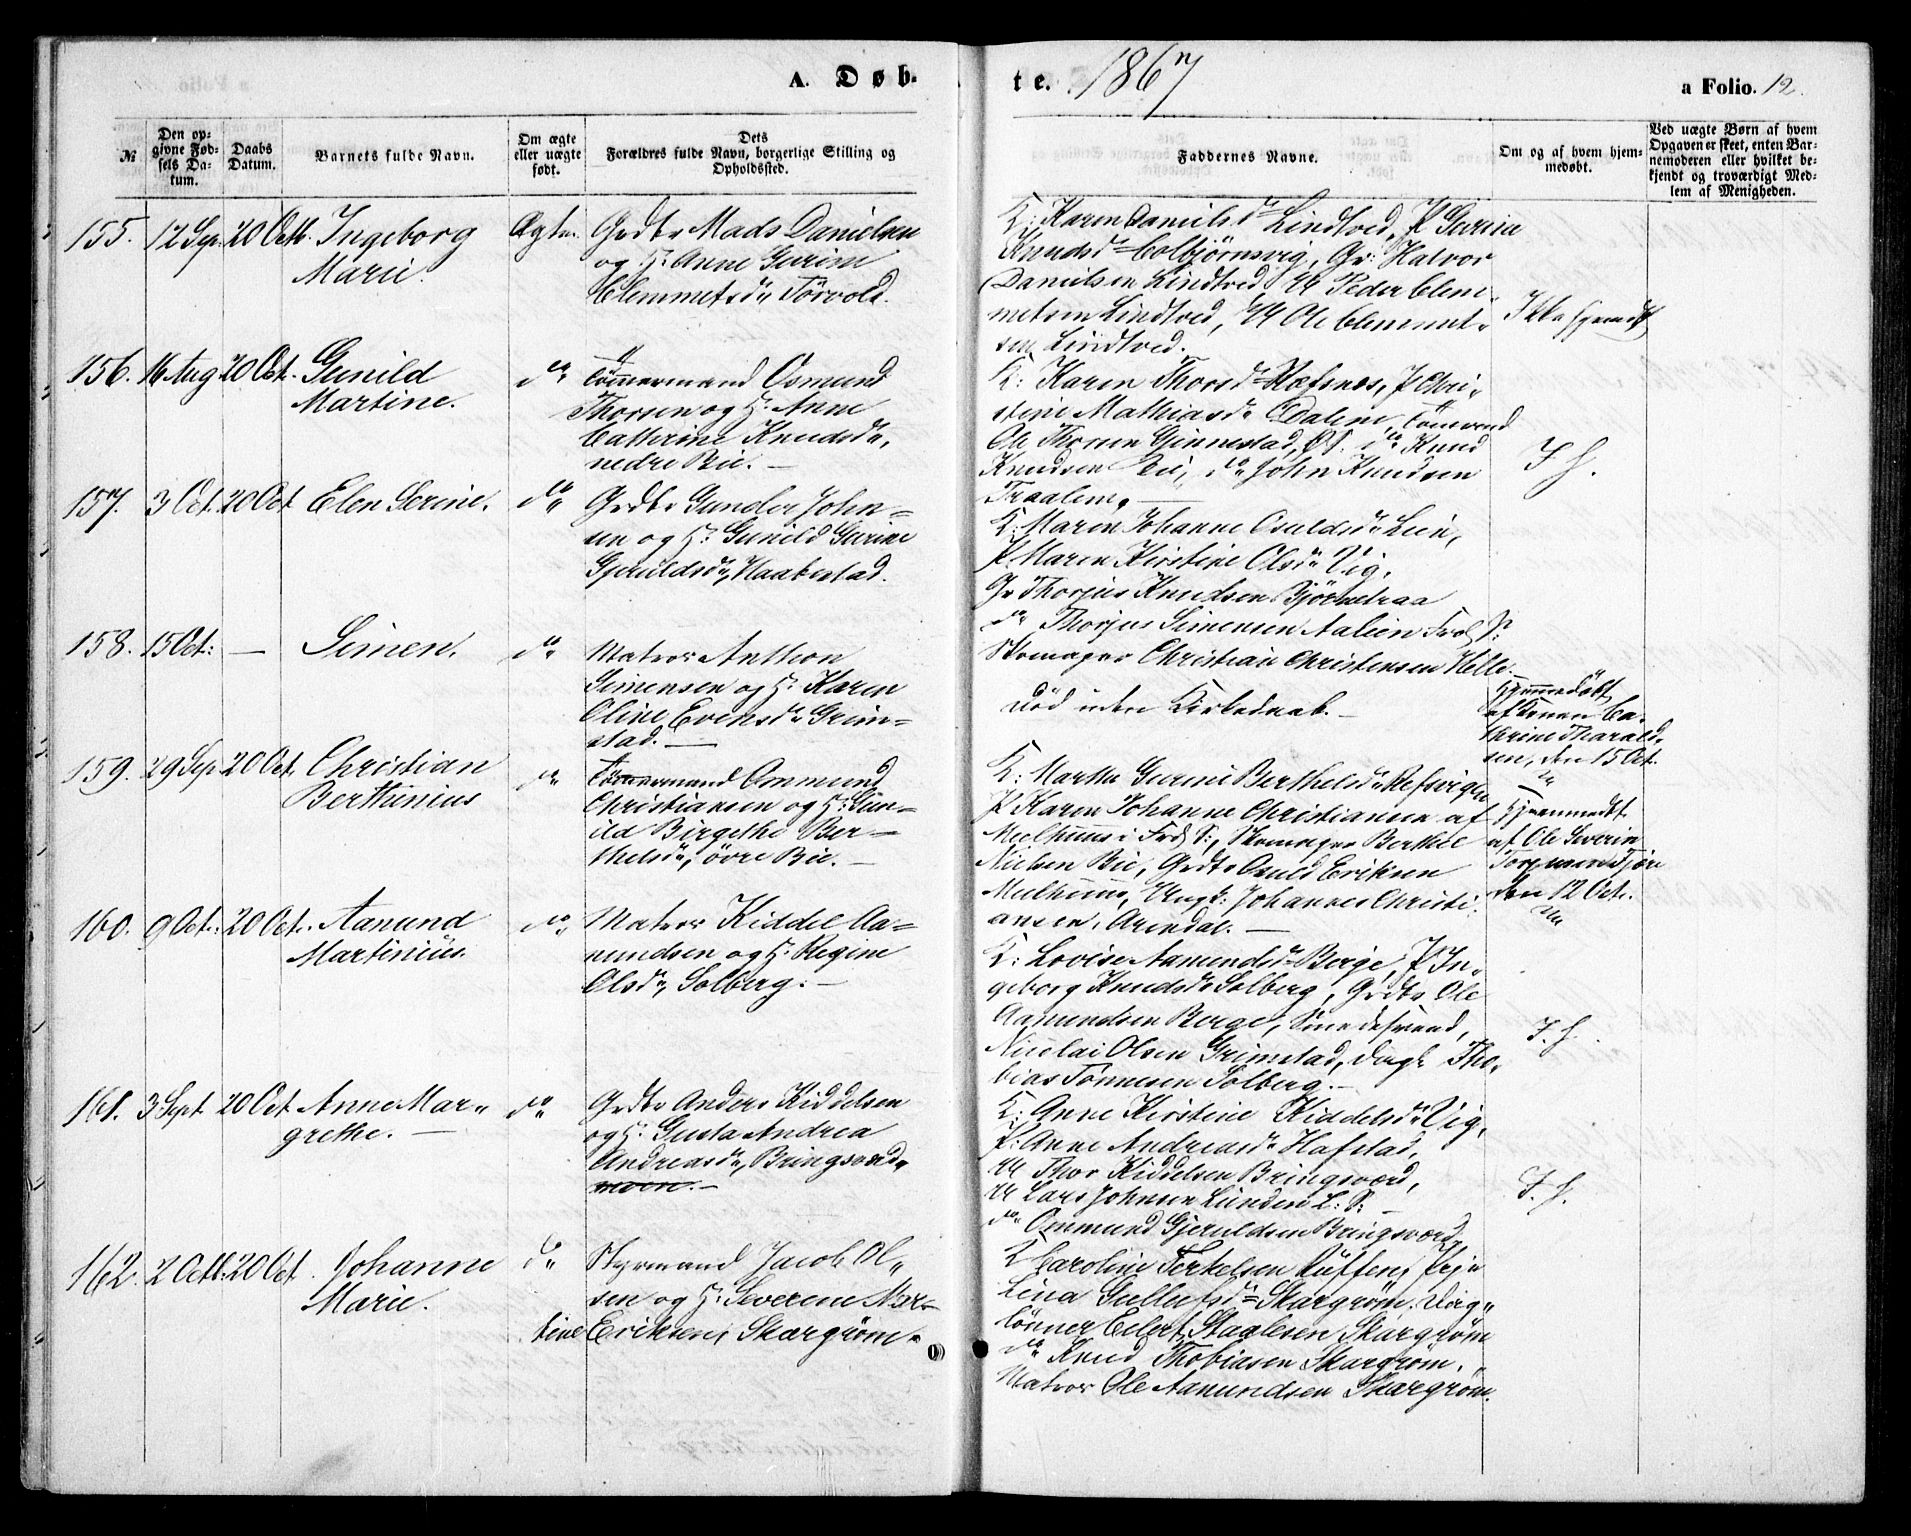 A. Døb-
te. 1867
a Folio. 12.
№
Den op-
givne Fød-
sels Da-
tum.
Daabs
Datum.
Barnets fulde Navn.
Om ægte
eller uægte
født.
Dets
Forældres fulde Navn, borgerlige Stilling og
Opholdssted.
Faddernes Navne.
Om og af hvem hjem-
medøbt.
Ved uægte Børn af hvem
Opgaven er skeet, enten Bar-
nemoderen eller hvilket be-
kjendt og troværdigt Med-
lem af Menigheden.
155. 12 Sep. 20 Octb. Ingeborg
Marie.
Ægte.
Grdbr Mads Danielsen
og H. Anne Gurine
Clemmetsdr Törvold.
K: Karen Danielsdr Lindtved, P Gurine
Knudsdr Colbjørnsvig, Gr: Halvor
Danielsen Lindtved, U Peder Clem-
metsen Lindtved, U Ole Clemmet-
sen Lindtved.
Ikke hjemdt
156. 16 Aug 20 Oct. Gunild
Martine.
do
Tömmermand Osmund
Thorsen og H. Anne
Cathrine Knudsdr,
nedre Bie. —
K: Karen Thorsdr Hæfsnes, P Chri-
stine Mathiasdr Dalene, Tömmermd
Ole Thorsen Ginnestad, Øst. do Knud
Knudsen Bie, do John Knudsen
Traalem. —
I H.
157. 3 Oct. 20 Oct Elen Serine.
do
Grdbr Gunder John-
sen og H. Gunild Gurine
Gjeruldsdr, Haabestad.
K: Maren Johanne Osuldsdr Lien,
P Maren Kirstine Olsdr Vig,
Gr Thorjus Knudsen Bjørnetraa
do Thorjus Simensen Aalien Frol S:
Skomager Christian Christensen Helle. —
158. 15 Oct: — Simen.
do
Matros Anthon
Simensen og H. Karen
Oline Evensdr Grim-
stad. —
Död uden Kirkedaab. —
Hjemmedöbt
af Konen Ca-
thrine Tharald-
sen, den 15 Oct.
159. 29 Sep 20 Oct. Christian
Berthinius
do
Tömmermand Ommund
Christiansen og H. Gun-
ild Birgethe Ber-
thelsdr, övre Bie. —
K: Marthe Gurine Berthelsdr Refsvigen
P Karen Johanne Christiansen af
Molhuus i Frol S:, Skomager Berthel
Nielsen Bie, Grdbr Osuld Eriksen
Molhuus, Ungk: Johannes Christi-
ansen, Arendal. —
Hjemmedt
af Ole Severin
den 12 Oct.
160. 9 Oct. 20 Oct. Aanund
Martinius.
do
Matros Kiddel Aa-
nundsen og H. Regine
Olsdr, Solberg. —
K: Lovise Aanundsdr Berge, P In-
geborg Knudsdr Solberg, Grdbr Ole
Aanundsen Berge, Smedesvend,
Nicolai Olsen Grimstad, Dagl Tho-
bias Tönnesen Solberg. —
I. H.
161. 3 Sept. 20 Oct Anne Mar-
grethe. —
do
Grdbr Anders Kiddelsen
og H. Gusta Andrea
Andreasdr, Bringsværd-
moen. —
K: Anne Kirstine Kiddelsdr Vig,
P: Anne Andreasdr Hafstad,
U Thor Kiddelsen Bringsværd,
U Lars Johnsen Lunden L: S: —
do Ommund Gjeruldsen Bringsværd.
I. H.
162. 2 Octb: 20 Oct. Johanne
Marie.
do
Styrmand Jacob Ol-
sen og H. Severine Mar-
tine Eriksen, Skargröm.
K Caroline Terkelsen Rüffen, Pige
Lina Gullufsdr Skargröm. Dag-
lönner Eilert Staalesen Skargröm
do Knud Thobiasen Skargröm.
Matros Ole Aanundsen Skargröm.